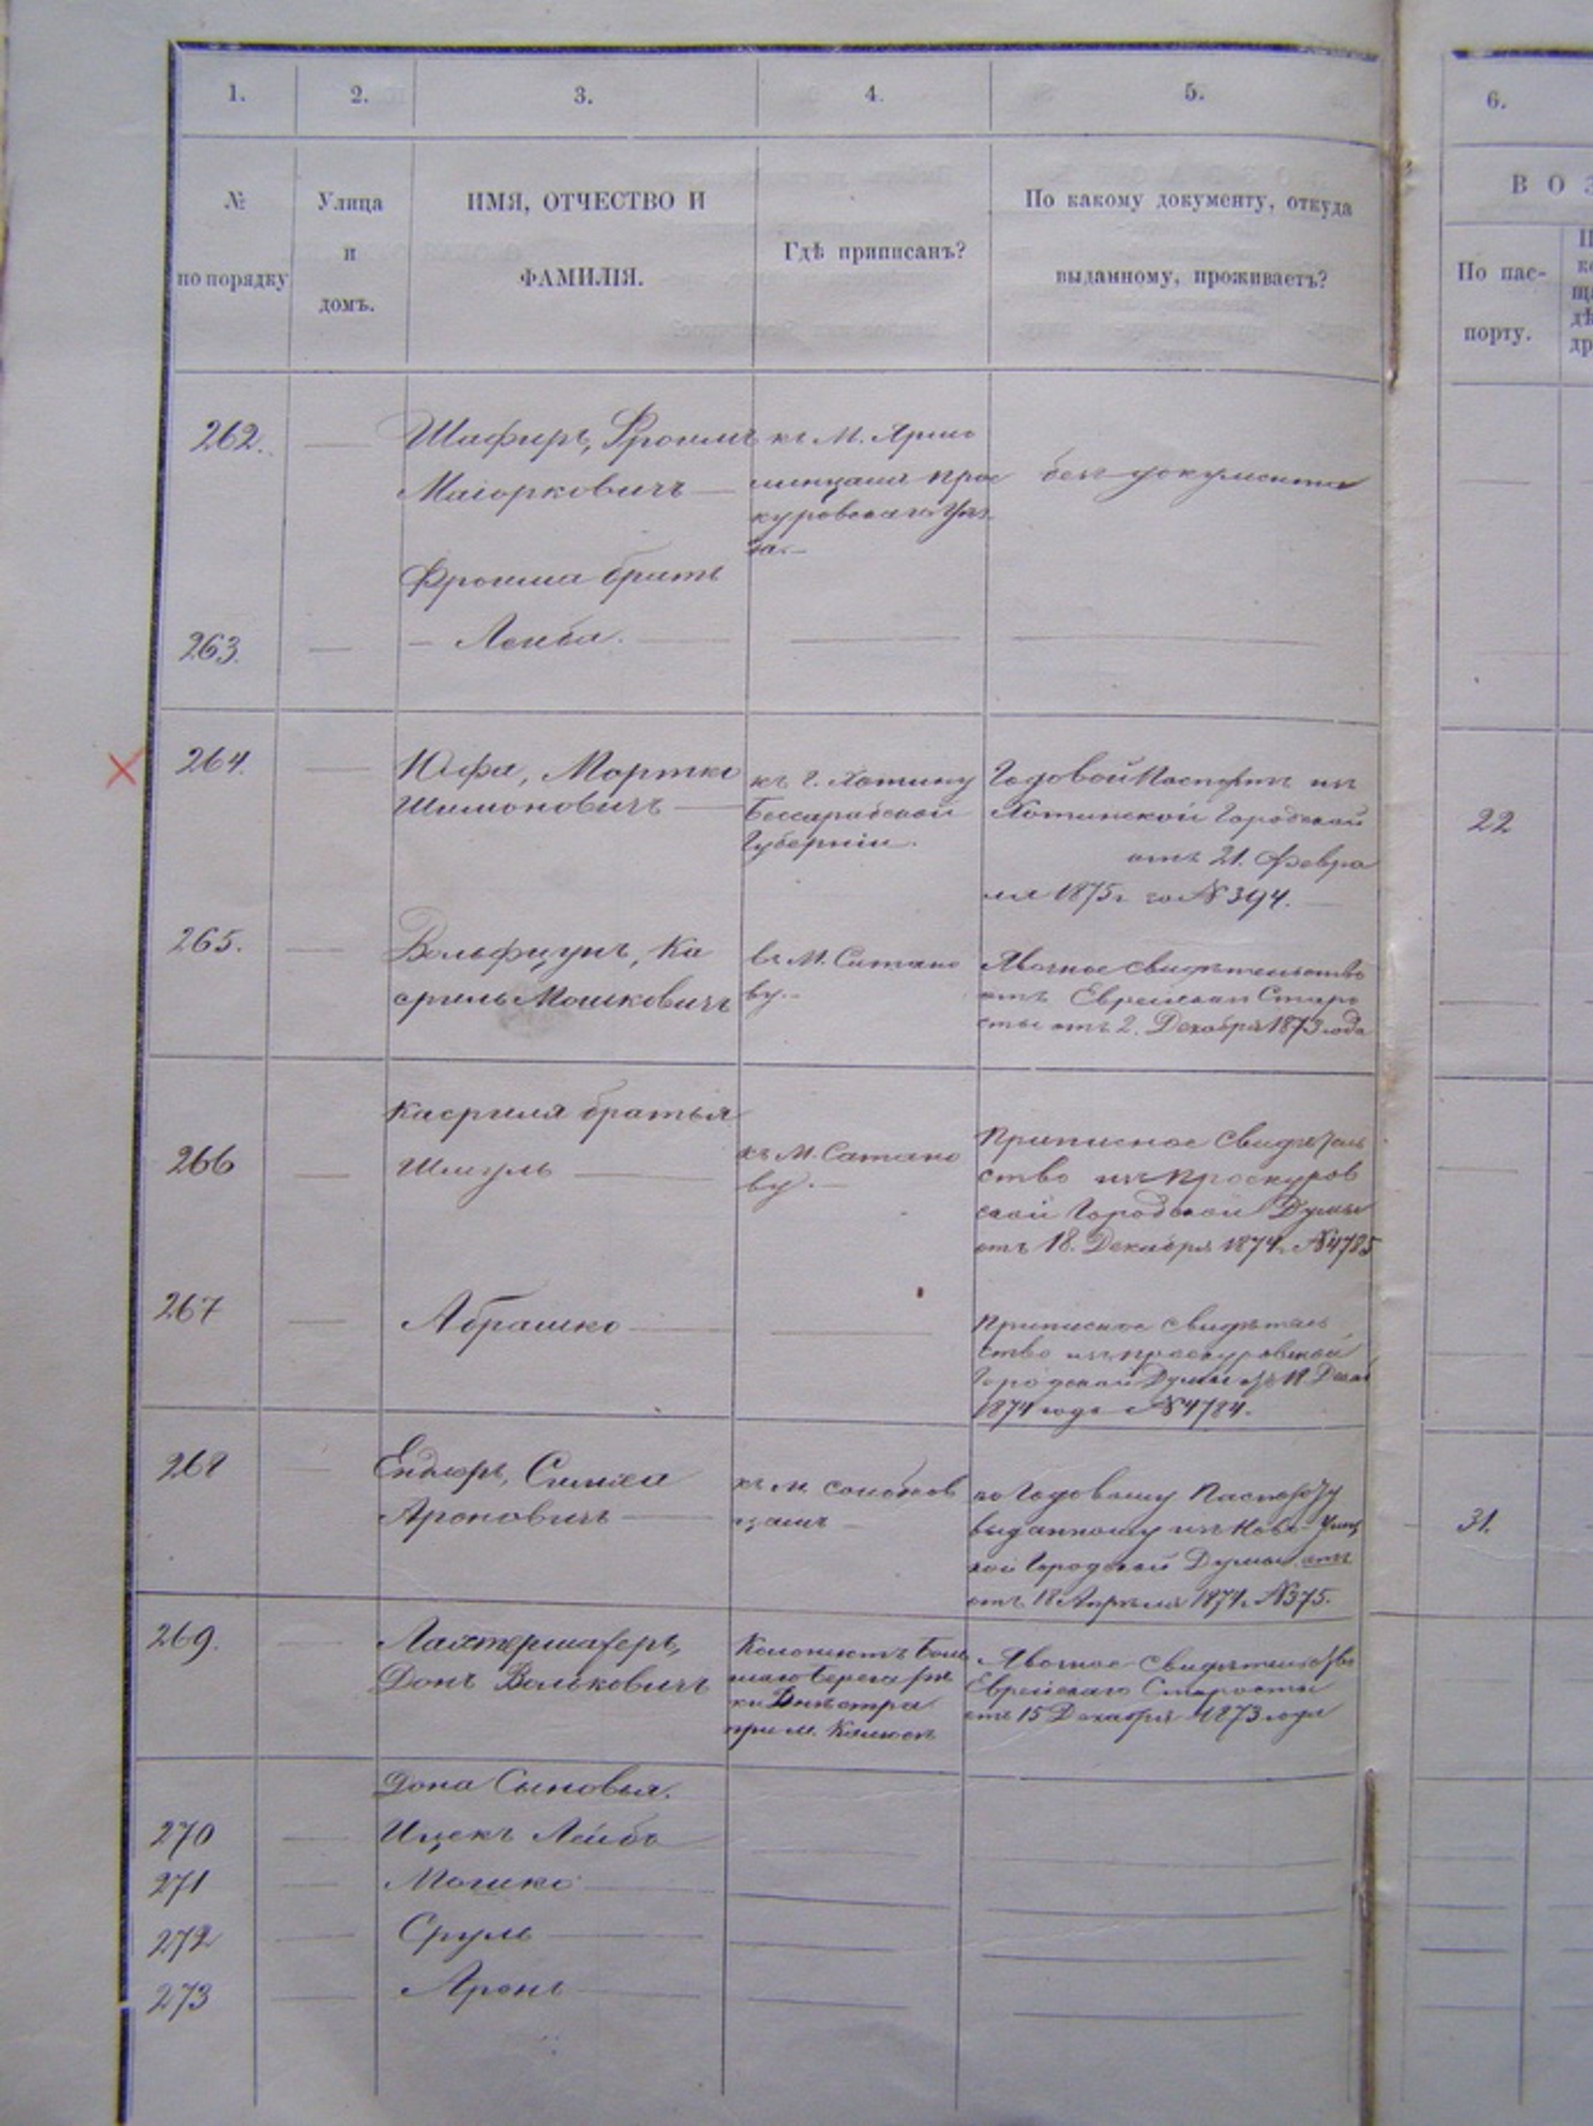 1.
2.
3.
4.
5.
6.
№
по порядку
Улица
и
домъ.
ИМЯ, ОТЧЕСТВО И
ФАМИЛІЯ.
Гдѣ приписанъ?
По какому документу, откуда
выданному, проживаетъ?
В О З
По пас-
порту.
262.
Шафиръ, Фроимъ
Маіорковичъ
къ М. Ярмо
линцамъ Прос
куровскаго Уѣз
да.
безъ документа
Фроима братъ
263.
Лейба.
264.
Юфа, Мортко
Шимоновичъ
къ г. Хотину
Бессарабской
Губерніи.
Годовой Паспортъ изъ
Хотинской Городской
отъ 21. Февра
ля 1875г за № 394.
22
265.
Вольфцунъ, Ка
сриль Мошковичъ
въ М. Сатано
ву.
Явочное свидѣтельство
отъ Еврейскаго Старо
сты отъ 2. Декабря 1873 года
Касриля братья
266
Шмуль
къ М. Сатано
ву.
Приписное Свидѣтель
ство изъ Проскуров
ской Городской Думы
отъ 18. Декабря 1874г №4785
267
Абрашко
Приписное свидѣтель
ство изъ Проскуровской
Городской Думы отъ 18 Декаб
1874 года №4784.
268
Ендлеръ, Симха
Ароновичъ
къ м.
цамъ
по Годовому Паспорту
выданному изъ Ново-Ушиц
кой Городской Думы отъ
отъ 18 Апрѣля 1874г №375.
31.
269.
Лахтермахеръ,
Донъ Вольковичъ
Колонистъ
берега рѣ
ки Днѣстра
при м. Калюсѣ
Явочное Свидѣтельство
Еврейскаго Старосты
отъ 15 Декабря 1873 года
Дона Сыновья.
270
Ицекъ Лейба
271
Мошко
272
Сруль
273
Аронъ